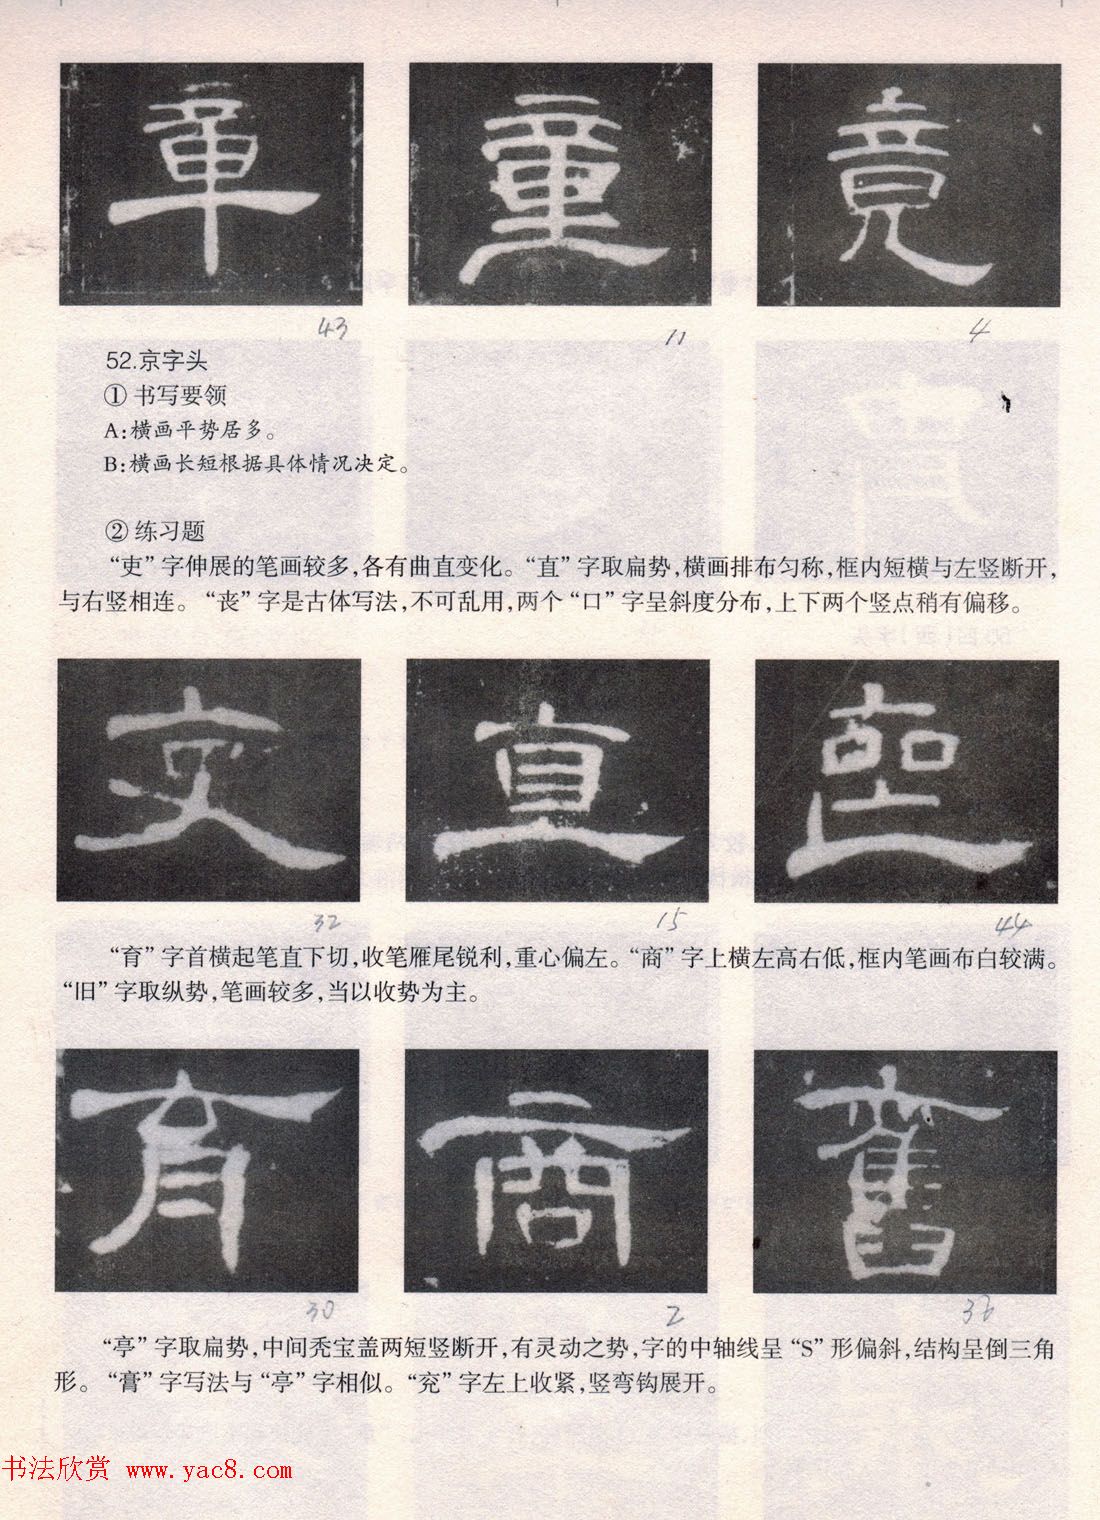 章 童 竟
43 11 4
52.京字头
① 书写要领
A:横画平势居多。
B:横画长短根据具体情况决定。
② 练习题
“吏”字伸展的笔画较多,各有曲直变化。“直”字取扁势,横画排布匀称,框内短横与左竖断开,
与右竖相连。“丧”字是古体写法,不可乱用,两个“口”字呈斜度分布,上下两个竖点稍有偏移。
吏 直 丧
32 15 44
“育”字首横起笔直下切,收笔雁尾锐利,重心偏左。“商”字上横左高右低,框内笔画布白较满。
“旧”字取纵势,笔画较多,当以收势为主。
育 商 舊
30 2 36
“亭”字取扁势,中间秃宝盖两短竖断开,有灵动之势,字的中轴线呈“S”形偏斜,结构呈倒三角
形。“膏”字写法与“亭”字相似。“兖”字左上收紧,竖弯钩展开。
书法欣赏 www.yac8.com